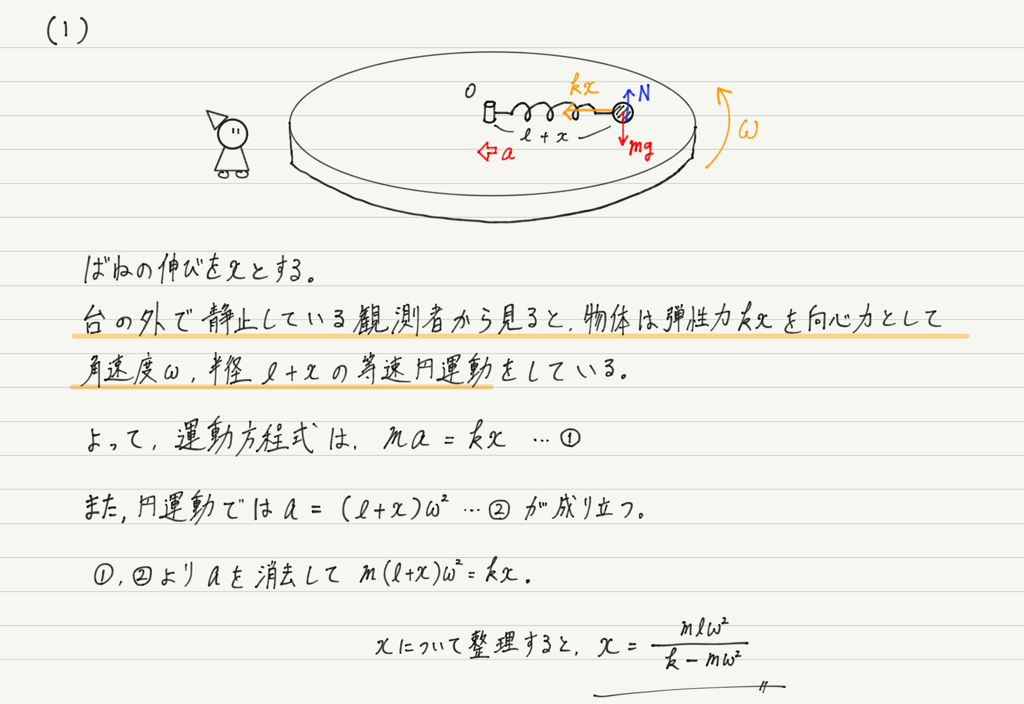 (1)
O
kx
N
l + x
mg
a
ω
ばねの伸びをxとする。
台の外で静止している観測者から見ると、物体は弾性力kxを向心力として
角速度ω、半径 l+x の等速円運動をしている。
よって、運動方程式は、 ma = kx … ①
また、円運動では a = (l+x)ω² … ② が成り立つ。
①、②より aを消去して m(l+x)ω² = kx.
xについて整理すると、 x = mlω² / k − mω²